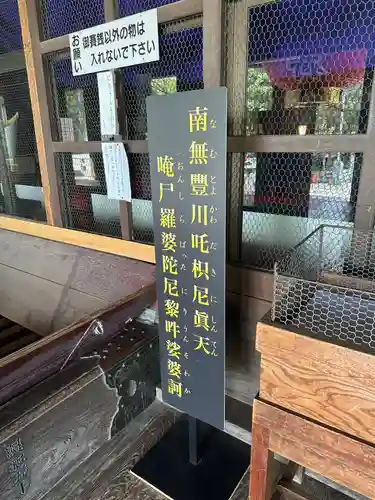 お願い
御賽銭以外の物は
入れないで下さい
南無豐川吒枳尼眞天
なむとよかわだきにしんてん
唵尸羅婆陀尼黎吽娑婆訶
おんしらばったにりうんそわか